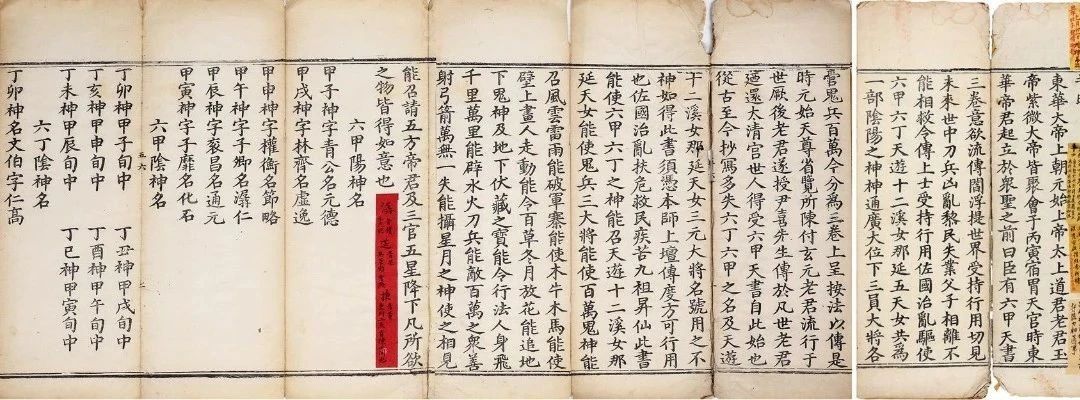 東華大帝上朝元始上帝太上道君老君玉
帝紫微大帝皆聚會于丙寅宿胃天官時東
華帝君起立於衆聖之前曰臣有六甲天書
三卷意欲流傳閻浮提世界受持行用切見
未來世中刀兵凶亂黎民失業父子相離不
能相救令傳上士受持行用佐國治亂驅使
六甲六丁天遊十二溪女那延五天女共爲
一部陰陽之神神通廣大位下三員大將各
鬼兵百萬今分爲三卷上呈按法以傳是
時元始天尊省覽所陳付玄元老君流行于
世厥後老君遂授尹喜先生傳於凡世老君
迺還太清宫世人得受六甲天書自此始也
從古至今抄寫多失六丁六甲之名及天遊
十二溪女那延天女三元大將名號用之不
神如得此書須憑本師上壇傳度方可行用
也佐國治亂扶危救民疾苦九祖昇仙此書
能使六甲六丁之神能召天遊十二溪女那
延天女能使鬼兵三大將能使百萬鬼神能
召風雲雷雨能破軍寨能使木牛木馬能使
壁上畫人走動能令百草冬月放花能追地
下鬼神及地下伏藏之寶能令行法人身飛
千里萬里能辟水火刀兵能敵百萬之衆善
射弓箭萬無一失能攝星月之神使之相見
能召請五方帝君及三官五星降下凡所欲
之物皆得如意也
六甲陽神名
甲子神字青公名元德
甲戌神字林齊名虛逸
甲申神字權衡名節略
甲午神字子卿名潺仁
甲辰神字衮昌名通元
甲寅神字子靡名化石
六甲陰神名
丁卯神甲子旬中 丁丑神甲戌旬中
丁亥神甲申旬中 丁酉神甲午旬中
丁未神甲辰旬中 丁巳神甲寅旬中
六丁陰神名
丁卯神名文伯字仁高